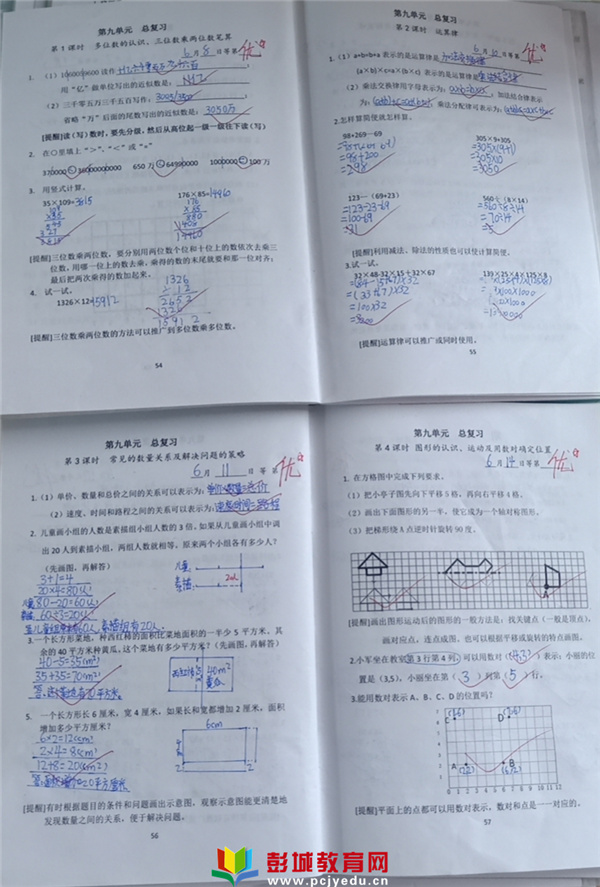 第九单元 总复习
第1课时 多位数的认识、三位数乘两位数笔算
6月8日等第优
用“亿”做单位写出的近似数是:
(2)三千零五万三千五百写作:
省略“万”后面的尾数写出的近似数是:3050万
[提醒]读(写)数时,要先分级,然后从高位起一级一级往下读(写)
2. 在○里填上“>”、“<”或“=”
3. 用竖式计算。
35×109=3815
176×85=14960
[提醒]三位数乘两位数,要分别用两位数个位和十位上的数依次去乘三
位数,用哪一位上的数去乘,乘得的数的末尾就要和那一位对齐;
最后把两次乘得的数加起来。
4. 试一试。
1326×12=15912
1326
2652
15912
[提醒]三位数乘两位数的方法可以推广到多位数乘多位数。
54
第九单元 总复习
第2课时 运算律
等第优
1.(1)a+b=b+a 表示的是运算律是
(a×b)×c=a×(b×c) 表示的是运算律是
(2)乘法交换律用字母表示为: ,加法结合律表示
为: ,乘法分配律可表示为:
2.怎样算简便就怎样算。
98+269-69
=98+200
=298
305×9+305
=305×(9+1)
=305×10
=3050
123-(69+23)
=123-23-69
=100-69
=31
560÷(8×14)
=560÷8÷14
=70÷14
=5
[提醒]利用减法、除法的性质也可以使计算简便。
3.试一试。
32×48-32×15+32×67
=100×32
139×25×4×125×8
[提醒]运算律可以推广或同时使用。
55
第九单元 总复习
第3课时 常见的数量关系及解决问题的策略
6月11日等第优
1.(1)单价、数量和总价之间的关系可以表示为:单价×数量=总价
(2)速度、时间和路程之间的关系可以表示为:速度×时间=路程
2. 儿童画小组的人数是素描组小组人数的3倍,如果从儿童画小组中调
出20人到素描小组,两组人数就相等。原来两个小组各有多少人?
(先画图,再解答)
3+1=4
20×4=80(人)
80-20=60(人)
60÷3=20(人)
3.一个长方形菜地,种西红柿的面积比菜地面积的一半少5平方米,其
余的40平方米种黄瓜,这个菜地有多少平方米?(先画图,再解答)
40-5=35(m²)
35+35=70(m²)
西红柿
40m²
黄瓜
5. 一个长方形长6厘米,宽4厘米,如果长和宽都增加2厘米,面积
增加多少平方厘米?
6×2=12(cm²)
2×4=8(cm²)
12+8=20(cm²)
6cm
[提醒]有时根据题目的条件和问题画出示意图,观察示意图能更清楚地
发现数量之间的关系,便于解决问题。
56
第九单元 总复习
第4课时 图形的认识、运动及用数对确定位置
6月14日等第优
1. 在方格图中完成下列要求。
(1)把小亭子图先向下平移5格,再向右平移4格。
(2)画出下面图形的另一半,使它成为一个轴对称图形。
(3)把梯形绕A点逆时针旋转90度。
[提醒]画出图形运动后的图形的一般方法是:找关键点(一般是顶点),
画对应点,连点成图。也可以根据平移或旋转的特点画图。
2.小军坐在教室第3行第4列,可以用数对(4,3)表示;小丽的位
置是(3,5),小丽坐在第(3)列第(5)行。
3.能用数对表示A、B、C、D的位置吗?
[提醒]平面上的点都可以用数对表示,数对和点是一一对应的。
57
彭城教育网
www.pcjyedu.cn